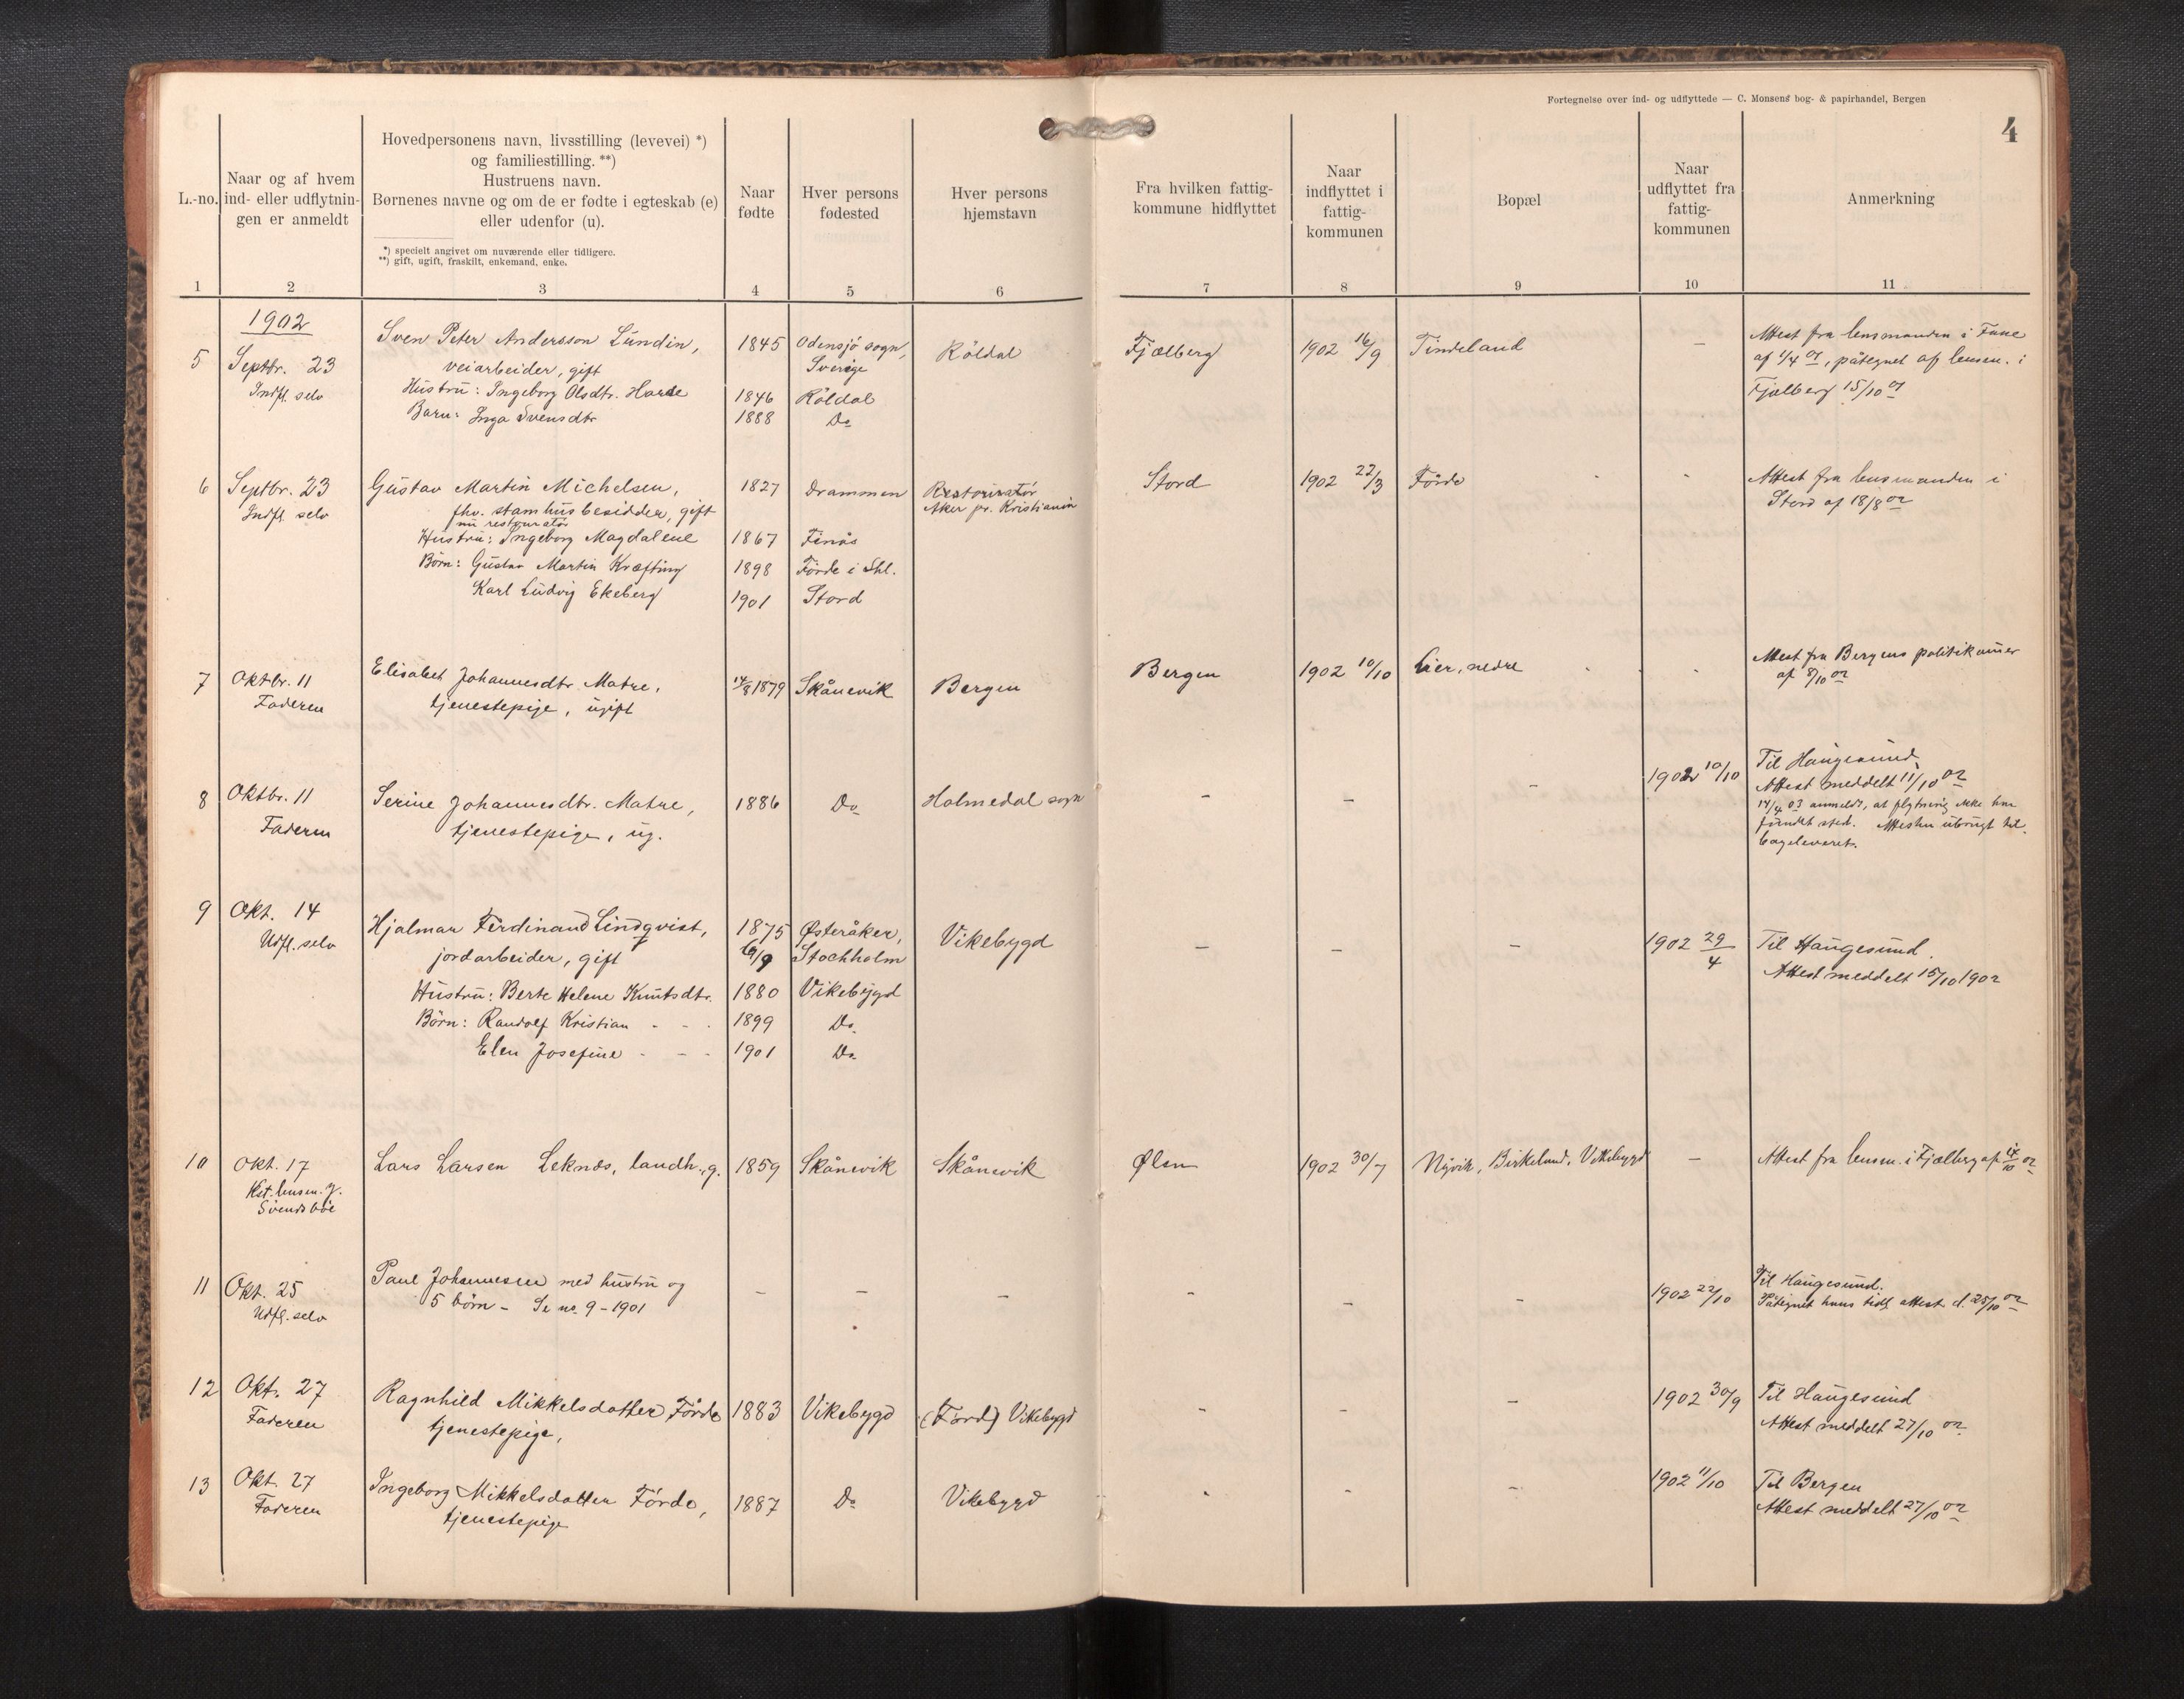 Fortegnelse over ind- og udflyttede — C. Monsens bog- & papirhandel, Bergen
4
L.-no.
Naar og af hvem
ind- eller udflytnin-
gen er anmeldt
Hovedpersonens navn, livsstilling (levevei) *)
og familiestilling. **)
Hustruens navn.
Børnenes navne og om de er fødte i egteskab (e)
eller udenfor (u).
*) specielt angivet om nuværende eller tidligere.
**) gift, ugift, fraskilt, enkemand, enke.
Naar
fødte
Hver persons
fødested
Hver persons
hjemstavn
Fra hvilken fattig-
kommune hidflyttet
Naar
indflyttet i
fattig-
kommunen
Bopæl
Naar
udflyttet fra
fattig-
kommunen
Anmerkning
1 2 3 4 5 6 7 8 9 10 11
1902
5 Septbr. 23 Sven Peter Andersson Lundin, 1845 Odensjö sogn, Röldal Fjælberg 1902 16/9 Tindeland — Attest fra lensmanden i
Indfl. selv veiarbeider, gift Sverige af 1/4 02, påtegnet af lensm. i
Hustru: Ingeborg Olsdtr. 1846 Röldal Fjælberg 15/10 02
Barn: Inga Svensdtr 1888 Do
6 Septbr. 23 Gustav Martin Michelsen, 1827 Drammen Restoiratør Stord 1902 22/3 Förde - Attest fra lensmanden i
Indfl. selv fhv. stamhusbesidder, gift Aker pr. Kristiania Stord af 18/8 02
nu restouratør
Hustru: Ingeborg Magdalene 1867 Finås
Börn: Gustav Martin Kræfting 1898 Förde i Shl.
Karl Ludvig Ekeberg 1901 Stord
7 Oktbr. 11 Elisabet Johannesdtr. Matre, 14/8 1879 Skånevik Bergen Bergen 1902 10/10 Lier, nedre - Attest fra Bergens politikamer
Faderen tjenestepige, ugift af 8/10 02
8 Oktbr. 11 Serine Johannesdtr. Matre, 1886 Do Holmedal sogn - - - 1902 10/10 Til Haugesund,
Faderen tjenestepige, ug. Attest meddelt 11/10 02
14/4 03 anmeldt, at flytning ikke har
fundet sted. Attesten ubrugt til-
bageleveret.
9 Okt. 14 Hjalmar Ferdinand Lindqvist, 1875 Østeråker, Vikebygd - - - 1902 29/4 Til Haugesund.
Udfl. selv jordarbeider, gift 6/9 Stochholm Attest meddelt 15/10 1902
Hustru: Berte Helene Knutsdtr. 1880 Vikebygd
Börn: Randolf Kristian - - 1899 Do
Elen Josefine - - - 1901 Do
10 Okt. 17 Lars Larsen Leknes, landh., g. 1859 Skånevik Skånevik Ølen 1902 30/7 Nyvik, Birkeland, Vikebygd — Attest fra lensm. i Fjælberg af 14/10 02
Kst. lensm. J.
Svendsböe
11 Okt. 25 Paul Johannesen med hustru og - - - - - - 1902 22/10 Til Haugesund.
Udfl. selv 5 börn - Se no 9 - 1901 Påtegnet hans tidl. attest d. 25/10 02
12 Okt. 27 Ragnhild Mikkelsdatter Förde 1883 Vikebygd (Förd) Vikebygd - - - 1902 30/9 Til Haugesund
Faderen tjenestepige, Attest meddelt 27/10 02
13 Okt. 27 Ingeborg Mikkelsdatter Förde, 1887 Do Vikebygd - - - 1902 11/10 Til Bergen
Faderen tjenestepige Attest meddelt 27/10 02